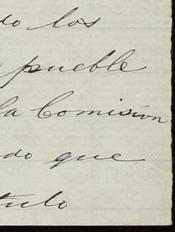 do los
pueble
la Comisión
do que
tulo